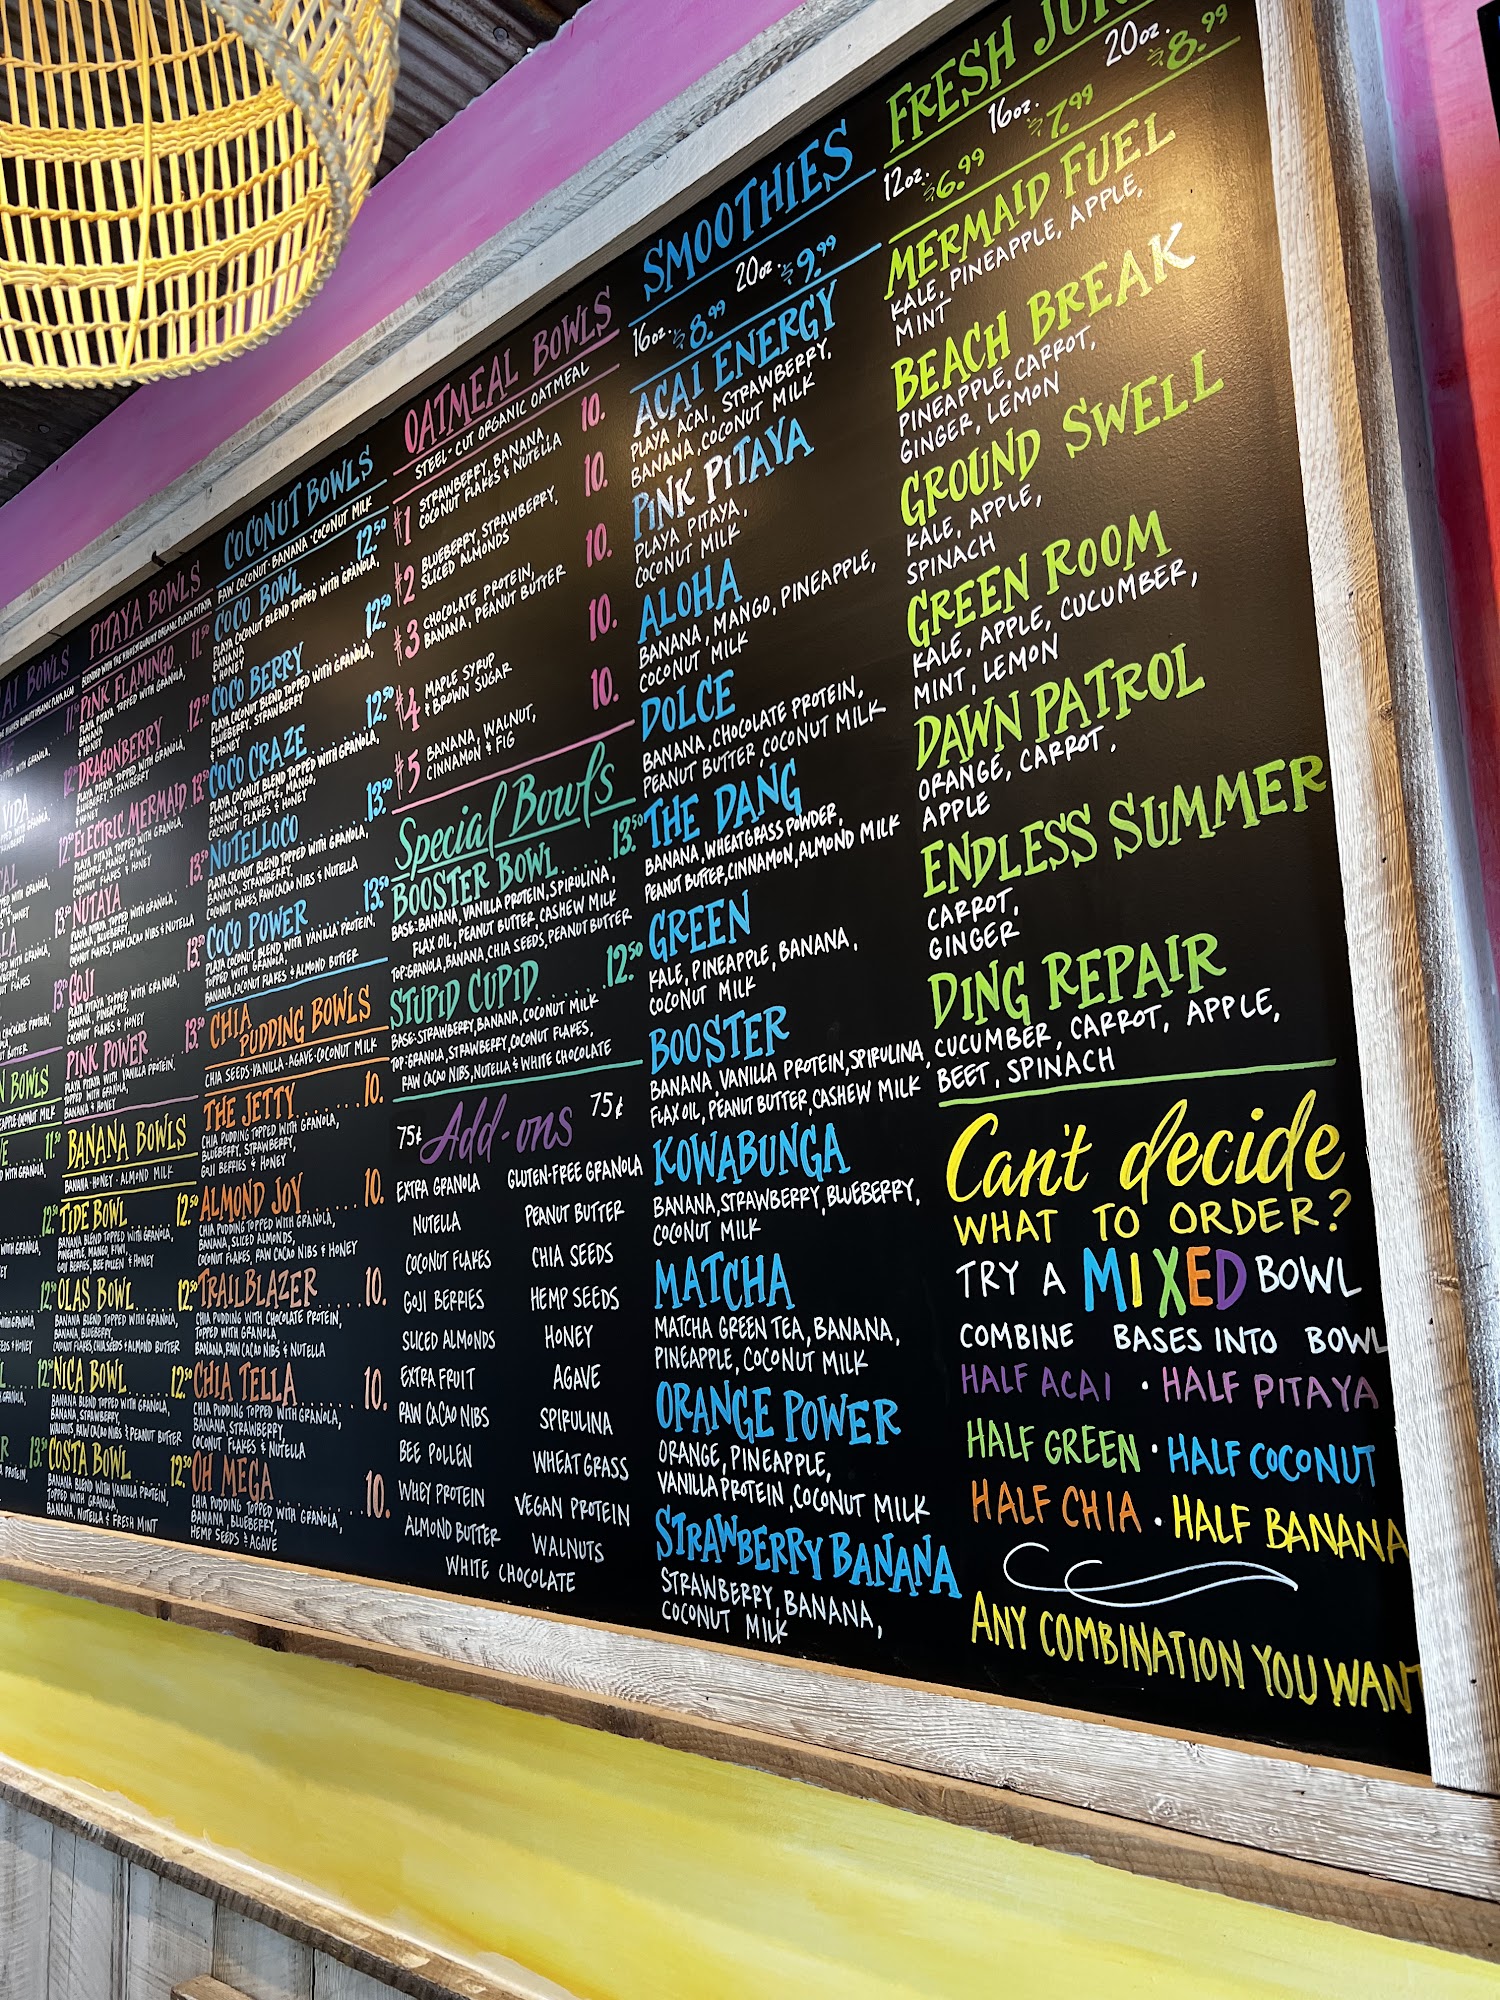 AI BOWLS
11.50
VIDA
12.50
13.50
13.50
N BOWLS
11.50
12.50
12.50
12.50
13.50
PITAYA BOWLS
BLENDED WITH THE HIGHEST QUALITY ORGANIC PLAYA PITAYA
PINK FLAMINGO 11.50
PLAYA PITAYA TOPPED WITH GRANOLA,
BANANA
& HONEY
DRAGONBERRY 12.50
PLAYA PITAYA TOPPED WITH GRANOLA,
BLUEBERRY, STRAWBERRY
& HONEY
ELECTRIC MERMAID 13.50
PLAYA PITAYA TOPPED WITH GRANOLA,
PINEAPPLE, MANGO, KIWI,
COCONUT FLAKES & HONEY
NUTAYA 13.50
PLAYA PITAYA TOPPED WITH GRANOLA,
BANANA, BLUEBERRY,
COCONUT FLAKES, RAW CACAO NIBS & NUTELLA
GOJI 13.50
PLAYA PITAYA TOPPED WITH GRANOLA,
BANANA, PINEAPPLE,
COCONUT FLAKES & HONEY
PINK POWER 13.50
PLAYA PITAYA WITH VANILLA PROTEIN,
TOPPED WITH GRANOLA,
BANANA & HONEY
BANANA BOWLS
BANANA·HONEY·ALMOND MILK
TIDE BOWL 12.50
BANANA BLEND TOPPED WITH GRANOLA,
PINEAPPLE, MANGO, KIWI,
GOJI BERRIES, BEE POLLEN & HONEY
OLAS BOWL 12.50
BANANA BLEND TOPPED WITH GRANOLA,
BANANA, BLUEBERRY,
COCONUT FLAKES, CHIA SEEDS & ALMOND BUTTER
NICA BOWL 12.50
BANANA BLEND TOPPED WITH GRANOLA,
BANANA, STRAWBERRY,
WALNUTS, RAW CACAO NIBS & PEANUT BUTTER
COSTA BOWL 12.50
BANANA BLEND WITH VANILLA PROTEIN,
TOPPED WITH GRANOLA,
BANANA, NUTELLA & FRESH MINT
COCONUT BOWLS
RAW COCONUT·BANANA·COCONUT MILK
COCO BOWL 12.50
PLAYA COCONUT BLEND TOPPED WITH GRANOLA,
BANANA
& HONEY
COCO BERRY 12.50
PLAYA COCONUT BLEND TOPPED WITH GRANOLA,
BLUEBERRY, STRAWBERRY
& HONEY
COCO CRAZE 12.50
PLAYA COCONUT BLEND TOPPED WITH GRANOLA,
BANANA, PINEAPPLE, MANGO,
COCONUT FLAKES & HONEY
NUTELLOCO 13.50
PLAYA COCONUT BLEND TOPPED WITH GRANOLA,
BANANA, STRAWBERRY,
COCONUT FLAKES, RAW CACAO NIBS & NUTELLA
COCO POWER 13.50
PLAYA COCONUT BLEND WITH VANILLA PROTEIN,
TOPPED WITH GRANOLA,
BANANA, COCONUT FLAKES & ALMOND BUTTER
CHIA PUDDING BOWLS
CHIA SEEDS·VANILLA·AGAVE·COCONUT MILK
THE JETTY 10.
CHIA PUDDING TOPPED WITH GRANOLA,
BLUEBERRY, STRAWBERRY,
GOJI BERRIES & HONEY
ALMOND JOY 10.
CHIA PUDDING TOPPED WITH GRANOLA,
BANANA, SLICED ALMONDS,
COCONUT FLAKES, RAW CACAO NIBS & HONEY
TRAILBLAZER 10.
CHIA PUDDING WITH CHOCOLATE PROTEIN,
TOPPED WITH GRANOLA
BANANA, RAW CACAO NIBS & NUTELLA
CHIA TELLA 10.
CHIA PUDDING TOPPED WITH GRANOLA,
BANANA, STRAWBERRY,
COCONUT FLAKES & NUTELLA
OH MEGA 10.
CHIA PUDDING TOPPED WITH GRANOLA,
BANANA, BLUEBERRY,
HEMP SEEDS & AGAVE
OATMEAL BOWLS
STEEL-CUT ORGANIC OATMEAL
#1 STRAWBERRY, BANANA, 10.
COCONUT FLAKES & NUTELLA
#2 BLUEBERRY, STRAWBERRY, 10.
SLICED ALMONDS
#3 CHOCOLATE PROTEIN, 10.
BANANA, PEANUT BUTTER
#4 MAPLE SYRUP 10.
& BROWN SUGAR
#5 BANANA, WALNUT, 10.
CINNAMON & FIG
Special Bowls
BOOSTER BOWL 13.50
BASE-BANANA, VANILLA PROTEIN, SPIRULINA,
FLAX OIL, PEANUT BUTTER, CASHEW MILK
TOP-GRANOLA, BANANA, CHIA SEEDS, PEANUT BUTTER
STUPID CUPID 12.50
BASE-STRAWBERRY, BANANA, COCONUT MILK
TOP-GRANOLA, STRAWBERRY, COCONUT FLAKES,
RAW CACAO NIBS, NUTELLA & WHITE CHOCOLATE
75¢ Add-ons 75¢
EXTRA GRANOLA GLUTEN-FREE GRANOLA
NUTELLA PEANUT BUTTER
COCONUT FLAKES CHIA SEEDS
GOJI BERRIES HEMP SEEDS
SLICED ALMONDS HONEY
EXTRA FRUIT AGAVE
RAW CACAO NIBS SPIRULINA
BEE POLLEN WHEAT GRASS
WHEY PROTEIN VEGAN PROTEIN
ALMOND BUTTER WALNUTS
WHITE CHOCOLATE
SMOOTHIES
16oz. $8.99 20oz. $9.99
ACAI ENERGY
PLAYA ACAI, STRAWBERRY,
BANANA, COCONUT MILK
PINK PITAYA
PLAYA PITAYA,
COCONUT MILK
ALOHA
BANANA, MANGO, PINEAPPLE,
COCONUT MILK
DOLCE
BANANA, CHOCOLATE PROTEIN,
PEANUT BUTTER, COCONUT MILK
THE DANG
BANANA, WHEATGRASS POWDER,
PEANUT BUTTER, CINNAMON, ALMOND MILK
GREEN
KALE, PINEAPPLE, BANANA,
COCONUT MILK
BOOSTER
BANANA, VANILLA PROTEIN, SPIRULINA,
FLAX OIL, PEANUT BUTTER, CASHEW MILK
KOWABUNGA
BANANA, STRAWBERRY, BLUEBERRY,
COCONUT MILK
MATCHA
MATCHA GREEN TEA, BANANA,
PINEAPPLE, COCONUT MILK
ORANGE POWER
ORANGE, PINEAPPLE,
VANILLA PROTEIN, COCONUT MILK
STRAWBERRY BANANA
STRAWBERRY, BANANA,
COCONUT MILK
FRESH JUI
12oz. $6.99 16oz. $7.99 20oz. $8.99
MERMAID FUEL
KALE, PINEAPPLE, APPLE,
MINT
BEACH BREAK
PINEAPPLE, CARROT,
GINGER, LEMON
GROUND SWELL
KALE, APPLE,
SPINACH
GREEN ROOM
KALE, APPLE, CUCUMBER,
MINT, LEMON
DAWN PATROL
ORANGE, CARROT,
APPLE
ENDLESS SUMMER
CARROT,
GINGER
DING REPAIR
CUCUMBER, CARROT, APPLE,
BEET, SPINACH
Can't decide
WHAT TO ORDER?
TRY A MIXED BOWL
COMBINE BASES INTO BOWL
HALF ACAI · HALF PITAYA
HALF GREEN · HALF COCONUT
HALF CHIA · HALF BANANA
ANY COMBINATION YOU WANT